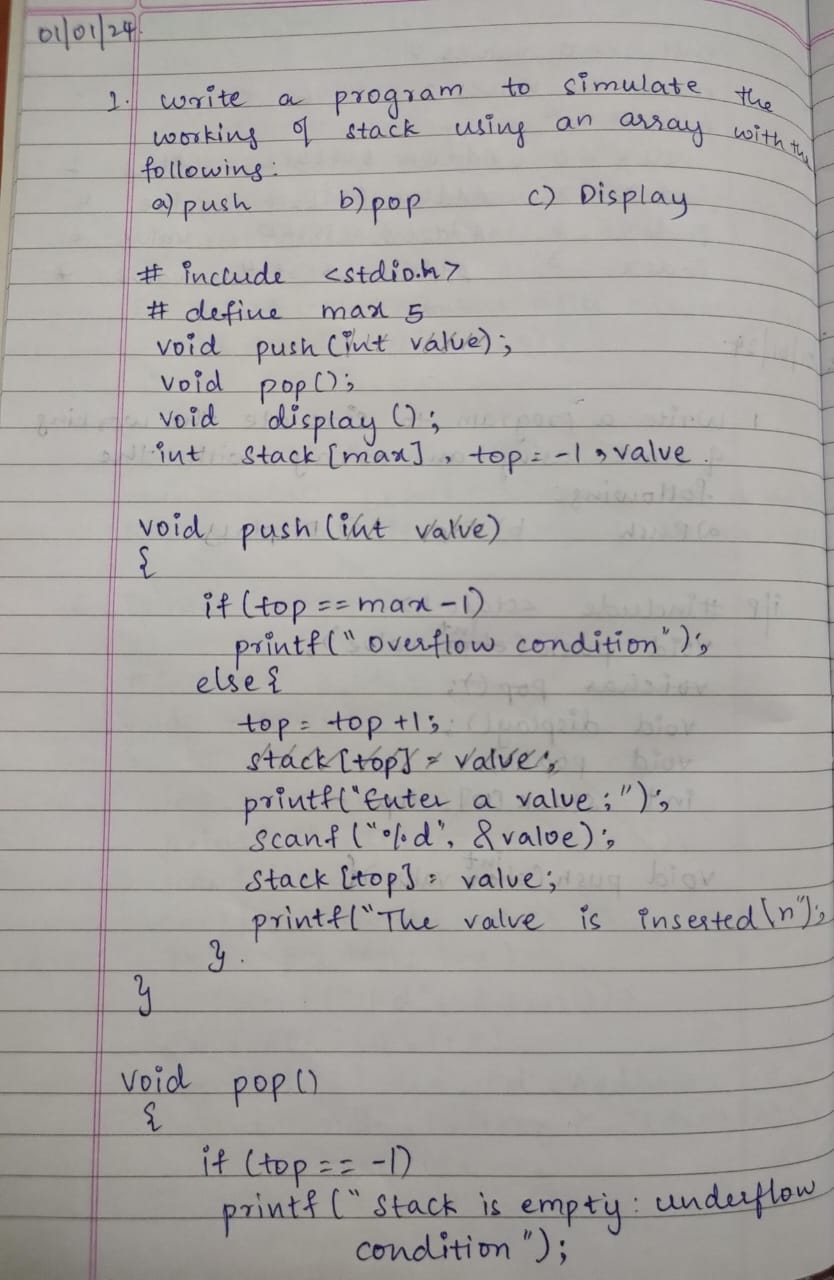 01/01/24
1. write a program to simulate the
working of stack using an array with the
following:
a) push b) pop c) Display
# include <stdio.h>
# define max 5
void push (int value);
void pop();
void display ();
int stack [max], top = -1, value.
void push (int value)
{
if (top == max -1)
printf(" Overflow condition");
else {
top = top +1;
stack [top] = value;
printf("Enter a value ;");
scanf ("%d", &value);
stack [top] = value;
printf("The value is inserted \n");
}.
}
void pop ()
{
if (top == -1)
printf (" Stack is empty : underflow
condition ");